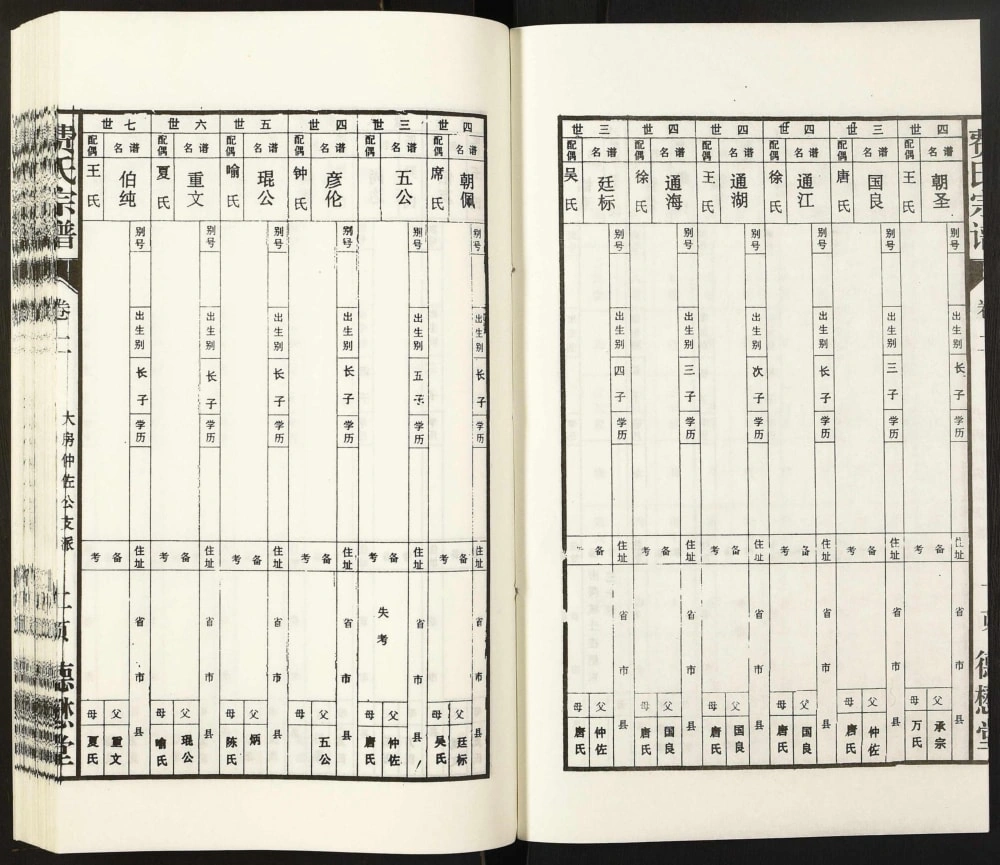 费氏宗谱
德懋堂
四世
谱名 朝圣
配偶 王氏
别号
出生别 长子
学历
住址 省 市 县
备考
父 承宗
母 万氏
三世
谱名 国良
配偶 唐氏
别号
出生别 三子
学历
住址 省 市 县
备考
父 仲佐
母 唐氏
四世
谱名 通江
配偶 徐氏
别号
出生别 长子
学历
住址 省 市 县
备考
父 国良
母 唐氏
四世
谱名 通湖
配偶 王氏
别号
出生别 次子
学历
住址 省 市 县
备考
父 国良
母 唐氏
四世
谱名 通海
配偶 徐氏
别号
出生别 三子
学历
住址 省 市 县
备考
父 国良
母 唐氏
三世
谱名 廷标
配偶 吴氏
别号
出生别 四子
学历
住址 省 市 县
备考
父 仲佐
母 唐氏
四世
谱名 朝佩
配偶 席氏
别号
出生别 长子
学历
住址 省 市
备考
父 廷标
母 吴氏
三世
谱名 五公
配偶
别号
出生别 五子
学历
住址 省 市 县
备考 失考
父 仲佐
母 唐氏
四世
谱名 彦伦
配偶 钟氏
别号
出生别 长子
学历
住址 省 市 县
备考
父 五公
母
五世
谱名 琨公
配偶 喻氏
别号
出生别 长子
学历
住址 省 市 县
备考
父 炳
母 陈氏
六世
谱名 重文
配偶 夏氏
别号
出生别 长子
学历
住址 省 市 县
备考
父 琨公
母 喻氏
七世
谱名 伯纯
配偶 王氏
别号
出生别 长子
学历
住址 省 市 县
备考
父 重文
母 夏氏
费氏宗谱
卷二
大房仲佐公支派
二页
德懋堂